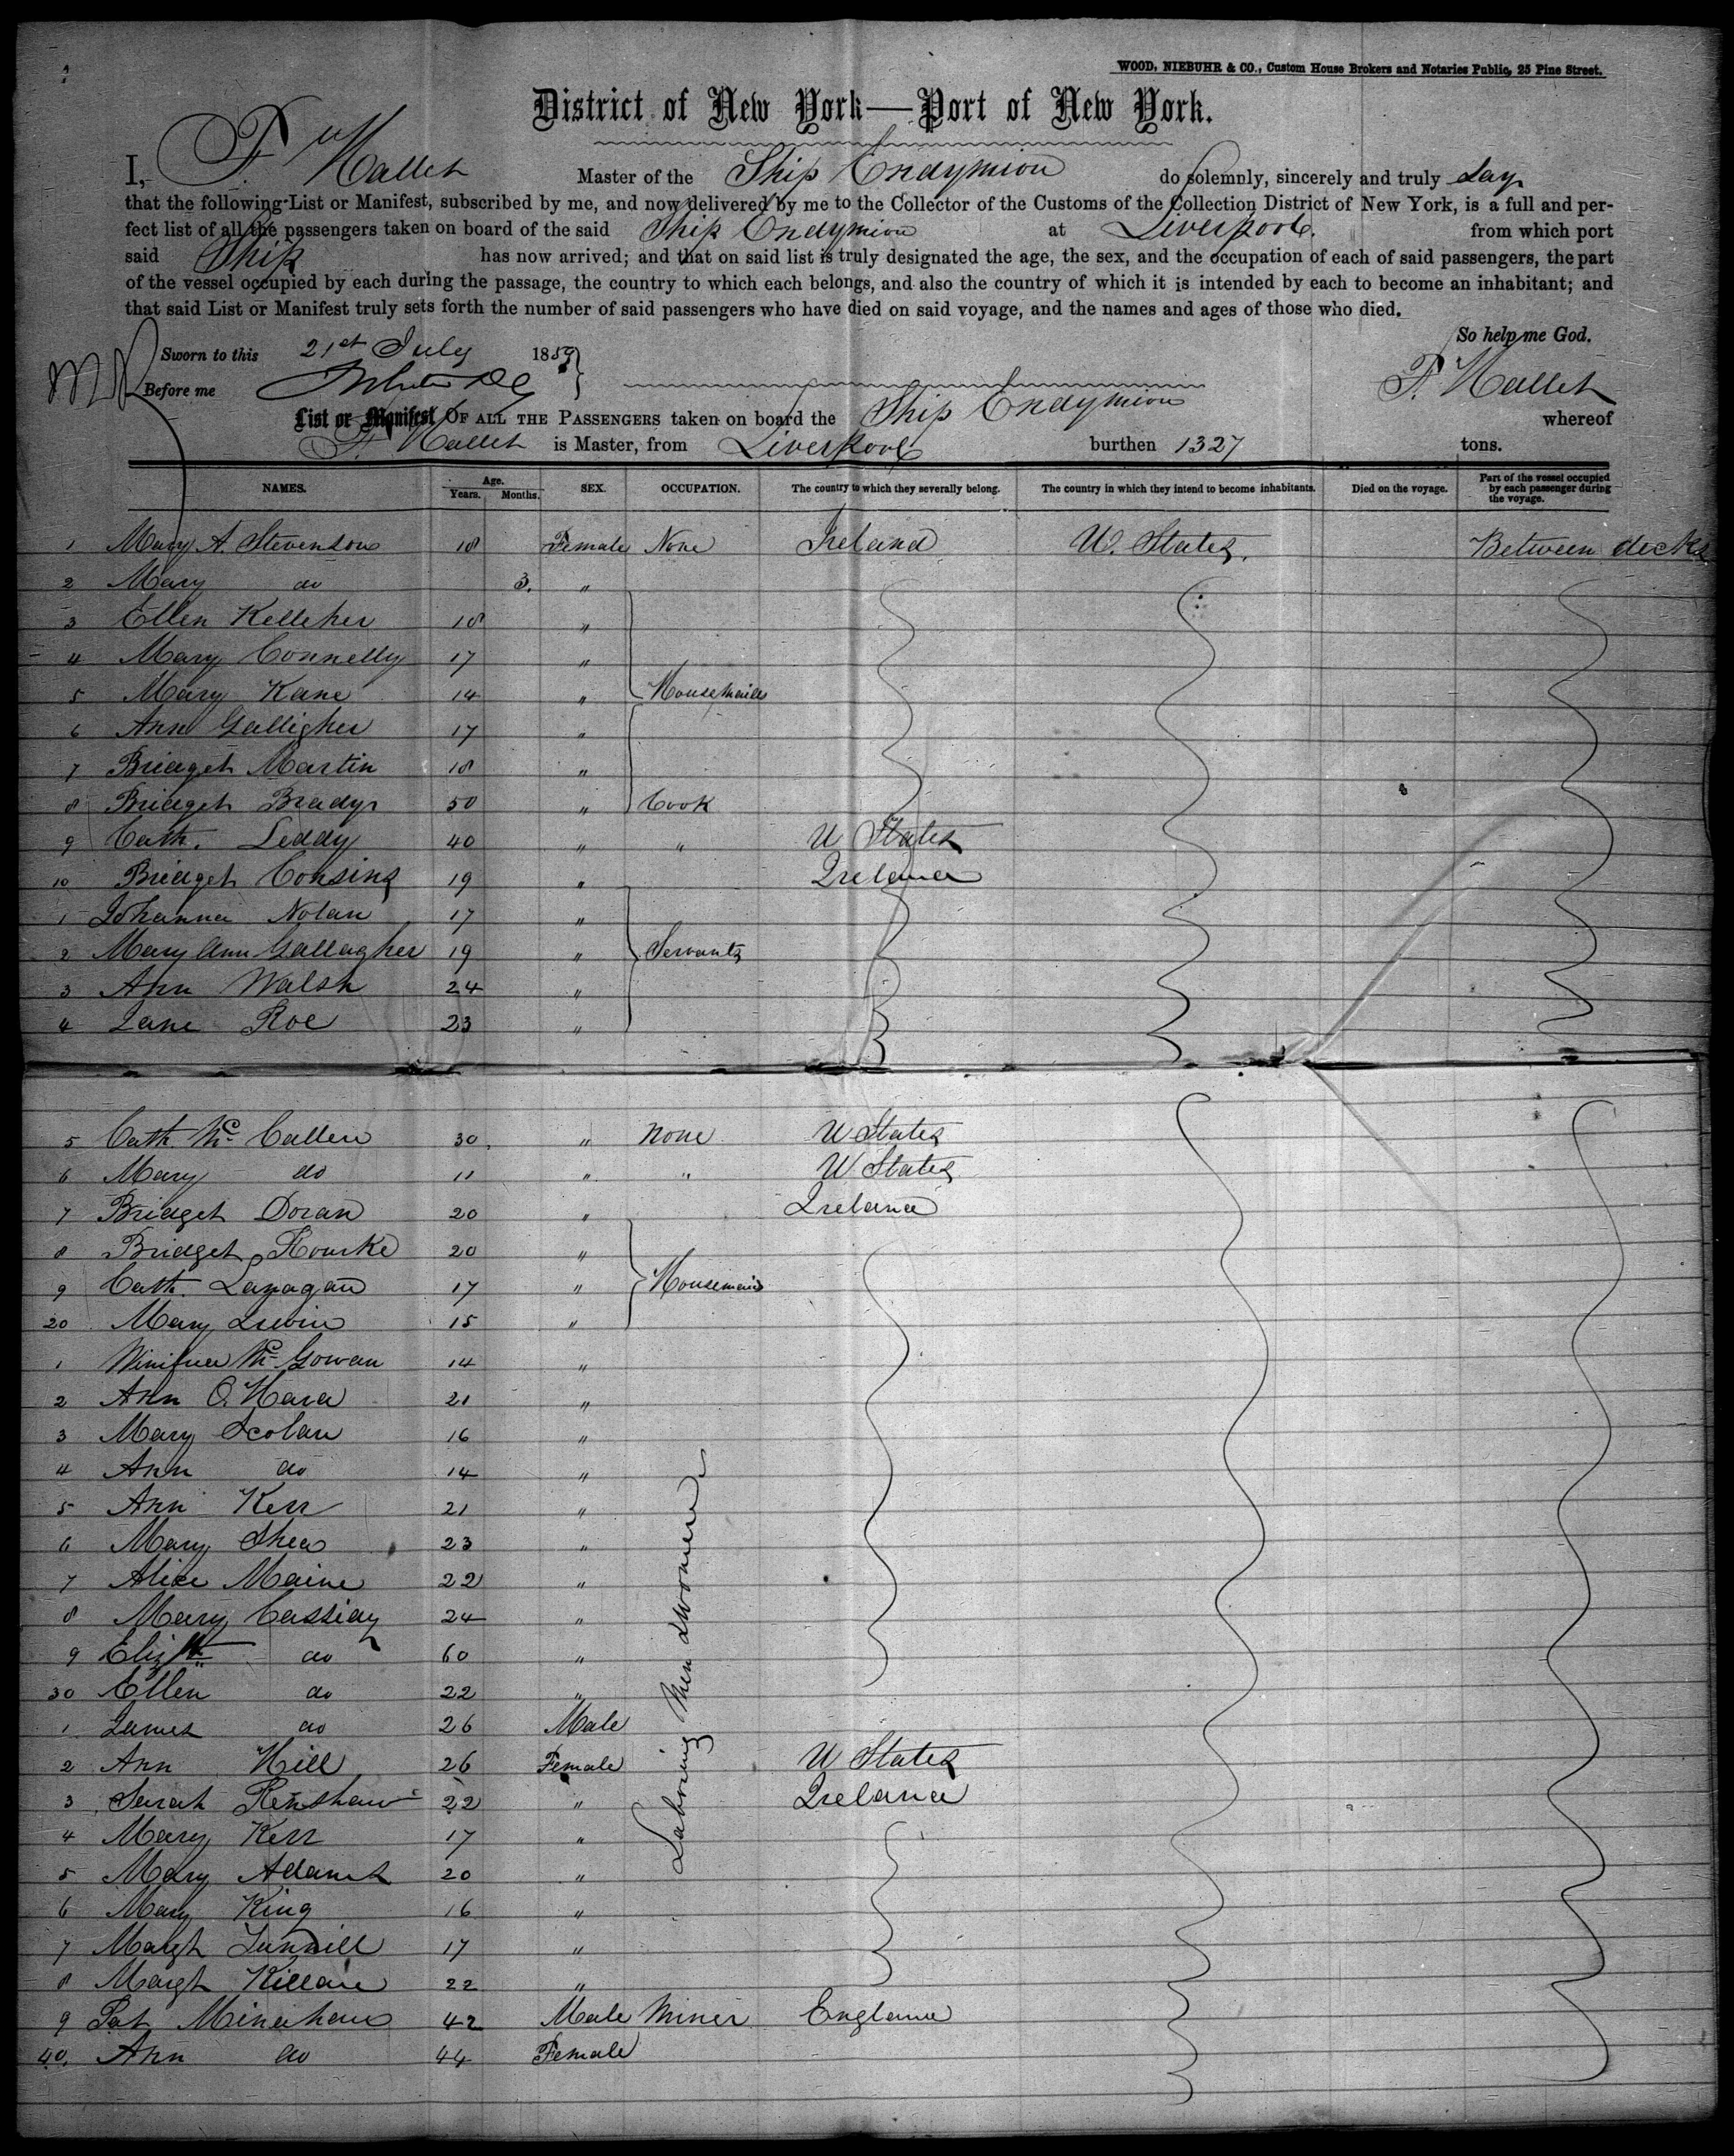 WOOD, NIEBUHR & CO., Custom House Brokers and Notaries Public, 25 Pine Street.
District of New York—Port of New York.
I, F. Hallet Master of the Ship Endymion do solemnly, sincerely and truly say
that the following List or Manifest, subscribed by me, and now delivered by me to the Collector of the Customs of the Collection District of New York, is a full and per-
fect list of all the passengers taken on board of the said Ship Endymion at Liverpool. from which port
said Ship has now arrived; and that on said list is truly designated the age, the sex, and the occupation of each of said passengers, the part
of the vessel occupied by each during the passage, the country to which each belongs, and also the country of which it is intended by each to become an inhabitant; and
that said List or Manifest truly sets forth the number of said passengers who have died on said voyage, and the names and ages of those who died.
So help me God.
Sworn to this 21st July 1859
Before me
F. Hallet
List or Manifest OF ALL THE PASSENGERS taken on board the Ship Endymion whereof
F. Hallet is Master, from Liverpool burthen 1327 tons.
NAMES. Age. Years. Months. SEX. OCCUPATION. The country to which they severally belong. The country in which they intend to become inhabitants. Died on the voyage. Part of the vessel occupied by each passenger during the voyage.
1 Mary A. Stevenson 18 Female None Ireland U. States. Between decks
2 Mary do 3. "
3 Ellen Kelleher 18 "
4 Mary Connelly 17 "
5 Mary Kane 14 " Housemaids
6 Ann Galligher 17 "
7 Bridget Martin 18 "
8 Bridget Brady 50 " Cook
9 Cath. Leddy 40 " " U States
10 Bridget Cousins 19 " Ireland
1 Johanna Nolan 17 "
2 Mary Ann Gallagher 19 " Servants
3 Ann Walsh 24 "
4 Jane Roe 23 "
5 Cath Mc Callen 30 " None U States
6 Mary do 11 " " U States
7 Bridget Doran 20 " Ireland
8 Bridget Rourke 20 "
9 Cath. Lanagan 17 " Housemaid
20 Mary Irwin 15 "
1 Winifred Mc Gowan 14 "
2 Ann O'Hara 21 "
3 Mary Scolan 16 "
4 Ann do 14 "
5 Ann Kerr 21 "
6 Mary Shea 23 "
7 Alice Maine 22 "
8 Mary Cassidy 24 "
9 Elizth do 60 "
30 Ellen do 22 "
1 James do 26 Male
Laboring Men & Women
2 Ann Hill 26 Female U States
3 Sarah Renshaw 22 " Ireland
4 Mary Kerr 17 "
5 Mary Adams 20 "
6 Mary King 16 "
7 Margt 17 "
8 Margt Killan 22 "
9 Pat Minahan 42 Male Miner England
40. Ann do 44 Female